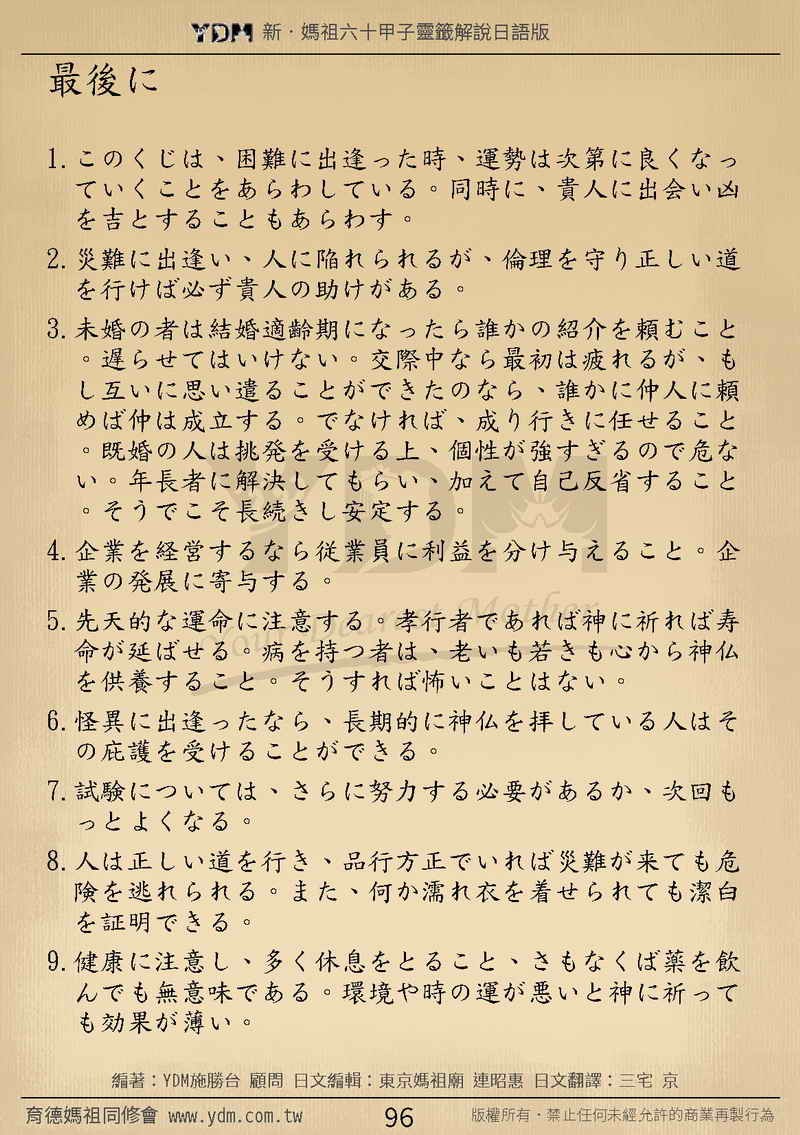 YDM 新・媽祖六十甲子靈籤解說日語版
最後に
1.このくじは、困難に出逢った時、運勢は次第に良くなっ
ていくことをあらわしている。同時に、貴人に出会い凶
を吉とすることもあらわす。
2.災難に出逢い、人に陥れられるが、倫理を守り正しい道
を行けば必ず貴人の助けがある。
3.未婚の者は結婚適齢期になったら誰かの紹介を頼むこと
。遅らせてはいけない。交際中なら最初は疲れるが、も
し互いに思い遣ることができたのなら、誰かに仲人に頼
めば仲は成立する。でなければ、成り行きに任せること
。既婚の人は挑発を受ける上、個性が強すぎるので危な
い。年長者に解決してもらい、加えて自己反省すること
。そうでこそ長続きし安定する。
4.企業を経営するなら従業員に利益を分け与えること。企
業の発展に寄与する。
5.先天的な運命に注意する。孝行者であれば神に祈れば寿
命が延ばせる。病を持つ者は、老いも若きも心から神仏
を供養すること。そうすれば怖いことはない。
6.怪異に出逢ったなら、長期的に神仏を拝している人はそ
の庇護を受けることができる。
7.試験については、さらに努力する必要があるか、次回も
っとよくなる。
8.人は正しい道を行き、品行方正でいれば災難が来ても危
険を逃れられる。また、何か濡れ衣を着せられても潔白
を証明できる。
9.健康に注意し、多く休息をとること、さもなくば薬を飲
んでも無意味である。環境や時の運が悪いと神に祈って
も効果が薄い。
YDM
Your Dearest Mother
編著：YDM施勝台 顧問 日文編輯：東京媽祖廟 連昭惠 日文翻譯：三宅 京
育德媽祖同修會 www.ydm.com.tw 96 版權所有・禁止任何未經允許的商業再製行為